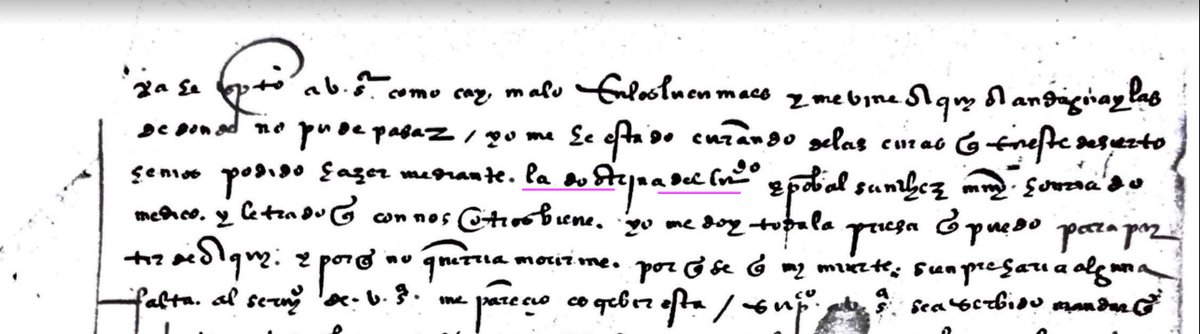 ya he scpto a v. sª. como cay. malo En los lucumaes y me vine de aqui de andaguaylas
de donde no pude pasar / yo me he estado curando de las curas q en este desierto
hemos podido hazer mediante. la dostrina del licdo xpobal sanchez mmy. honrrado
medico. y letrado q con nosotros biene. yo me doy toda la priesa q puedo para par
tir de aqui. y porq no querria morirme. porq se q my muerte. haria alguna
falta. al sermy de. v. sª. me parecio escrebir esta / supco sª. sea serbido mandar q